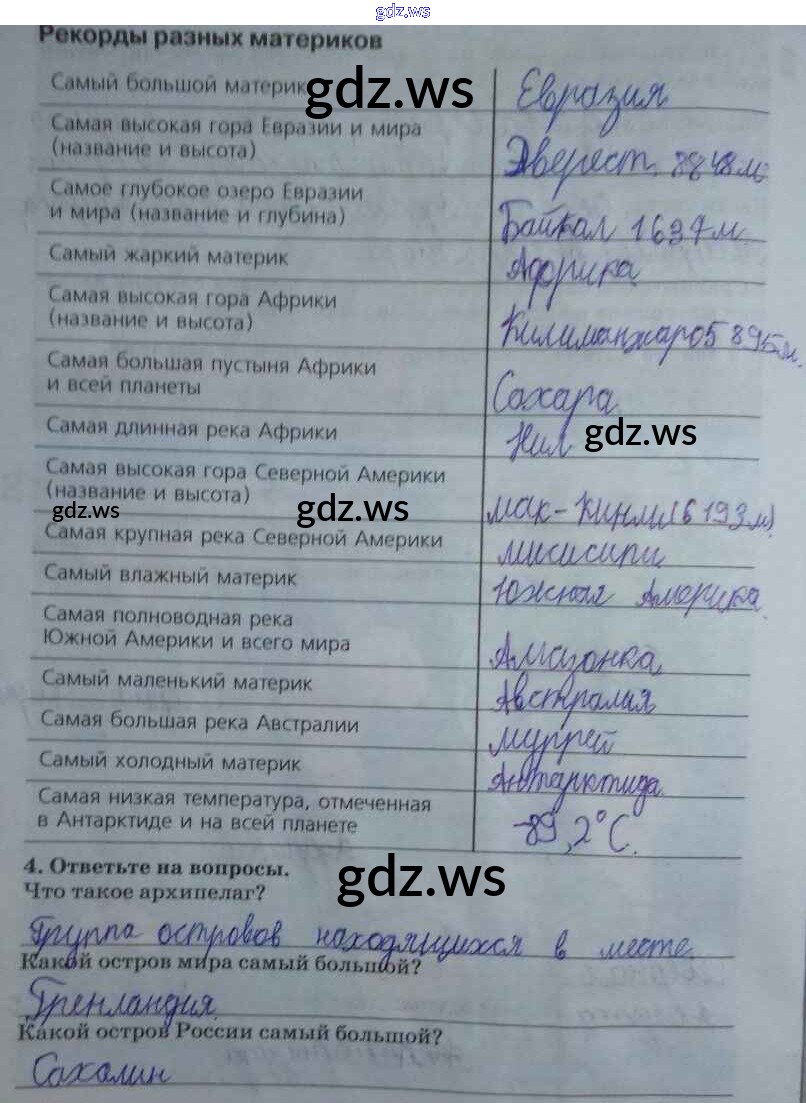 gdz.ws
Рекорды разных материков
Самый большой материк
gdz.ws
Евразия
Самая высокая гора Евразии и мира
(название и высота)
Эверест, 8848 м.
Самое глубокое озеро Евразии
и мира (название и глубина)
Байкал 1637 м.
Самый жаркий материк
Африка
Самая высокая гора Африки
(название и высота)
Килиманжаро 5 895 м.
Самая большая пустыня Африки
и всей планеты
Сахара.
Самая длинная река Африки
Нил
gdz.ws
Самая высокая гора Северной Америки
(название и высота)
gdz.ws
gdz.ws
мак-Кинли (6 193 м).
Самая крупная река Северной Америки
мисисипи
Самый влажный материк
Южная Америка.
Самая полноводная река
Южной Америки и всего мира
Амазонка
Самый маленький материк
Австралия
Самая большая река Австралии
муррей
Самый холодный материк
Антарктида
Самая низкая температура, отмеченная
в Антарктиде и на всей планете
-89,2°С.
4. Ответьте на вопросы.
Что такое архипелаг?
gdz.ws
Группа островов находящихся в месте.
Какой остров мира самый большой?
Гренландия.
Какой остров России самый большой?
Сахалин